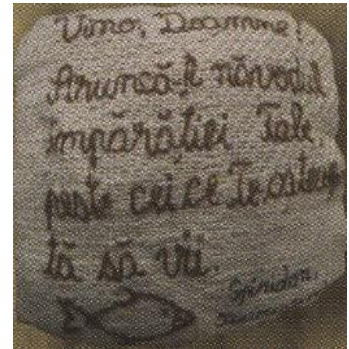 Vino, Doamne!
Aruncă-ți năvodul
împărăției Tale,
peste cei ce Te așteap-
tă să vii.
Spiridon,